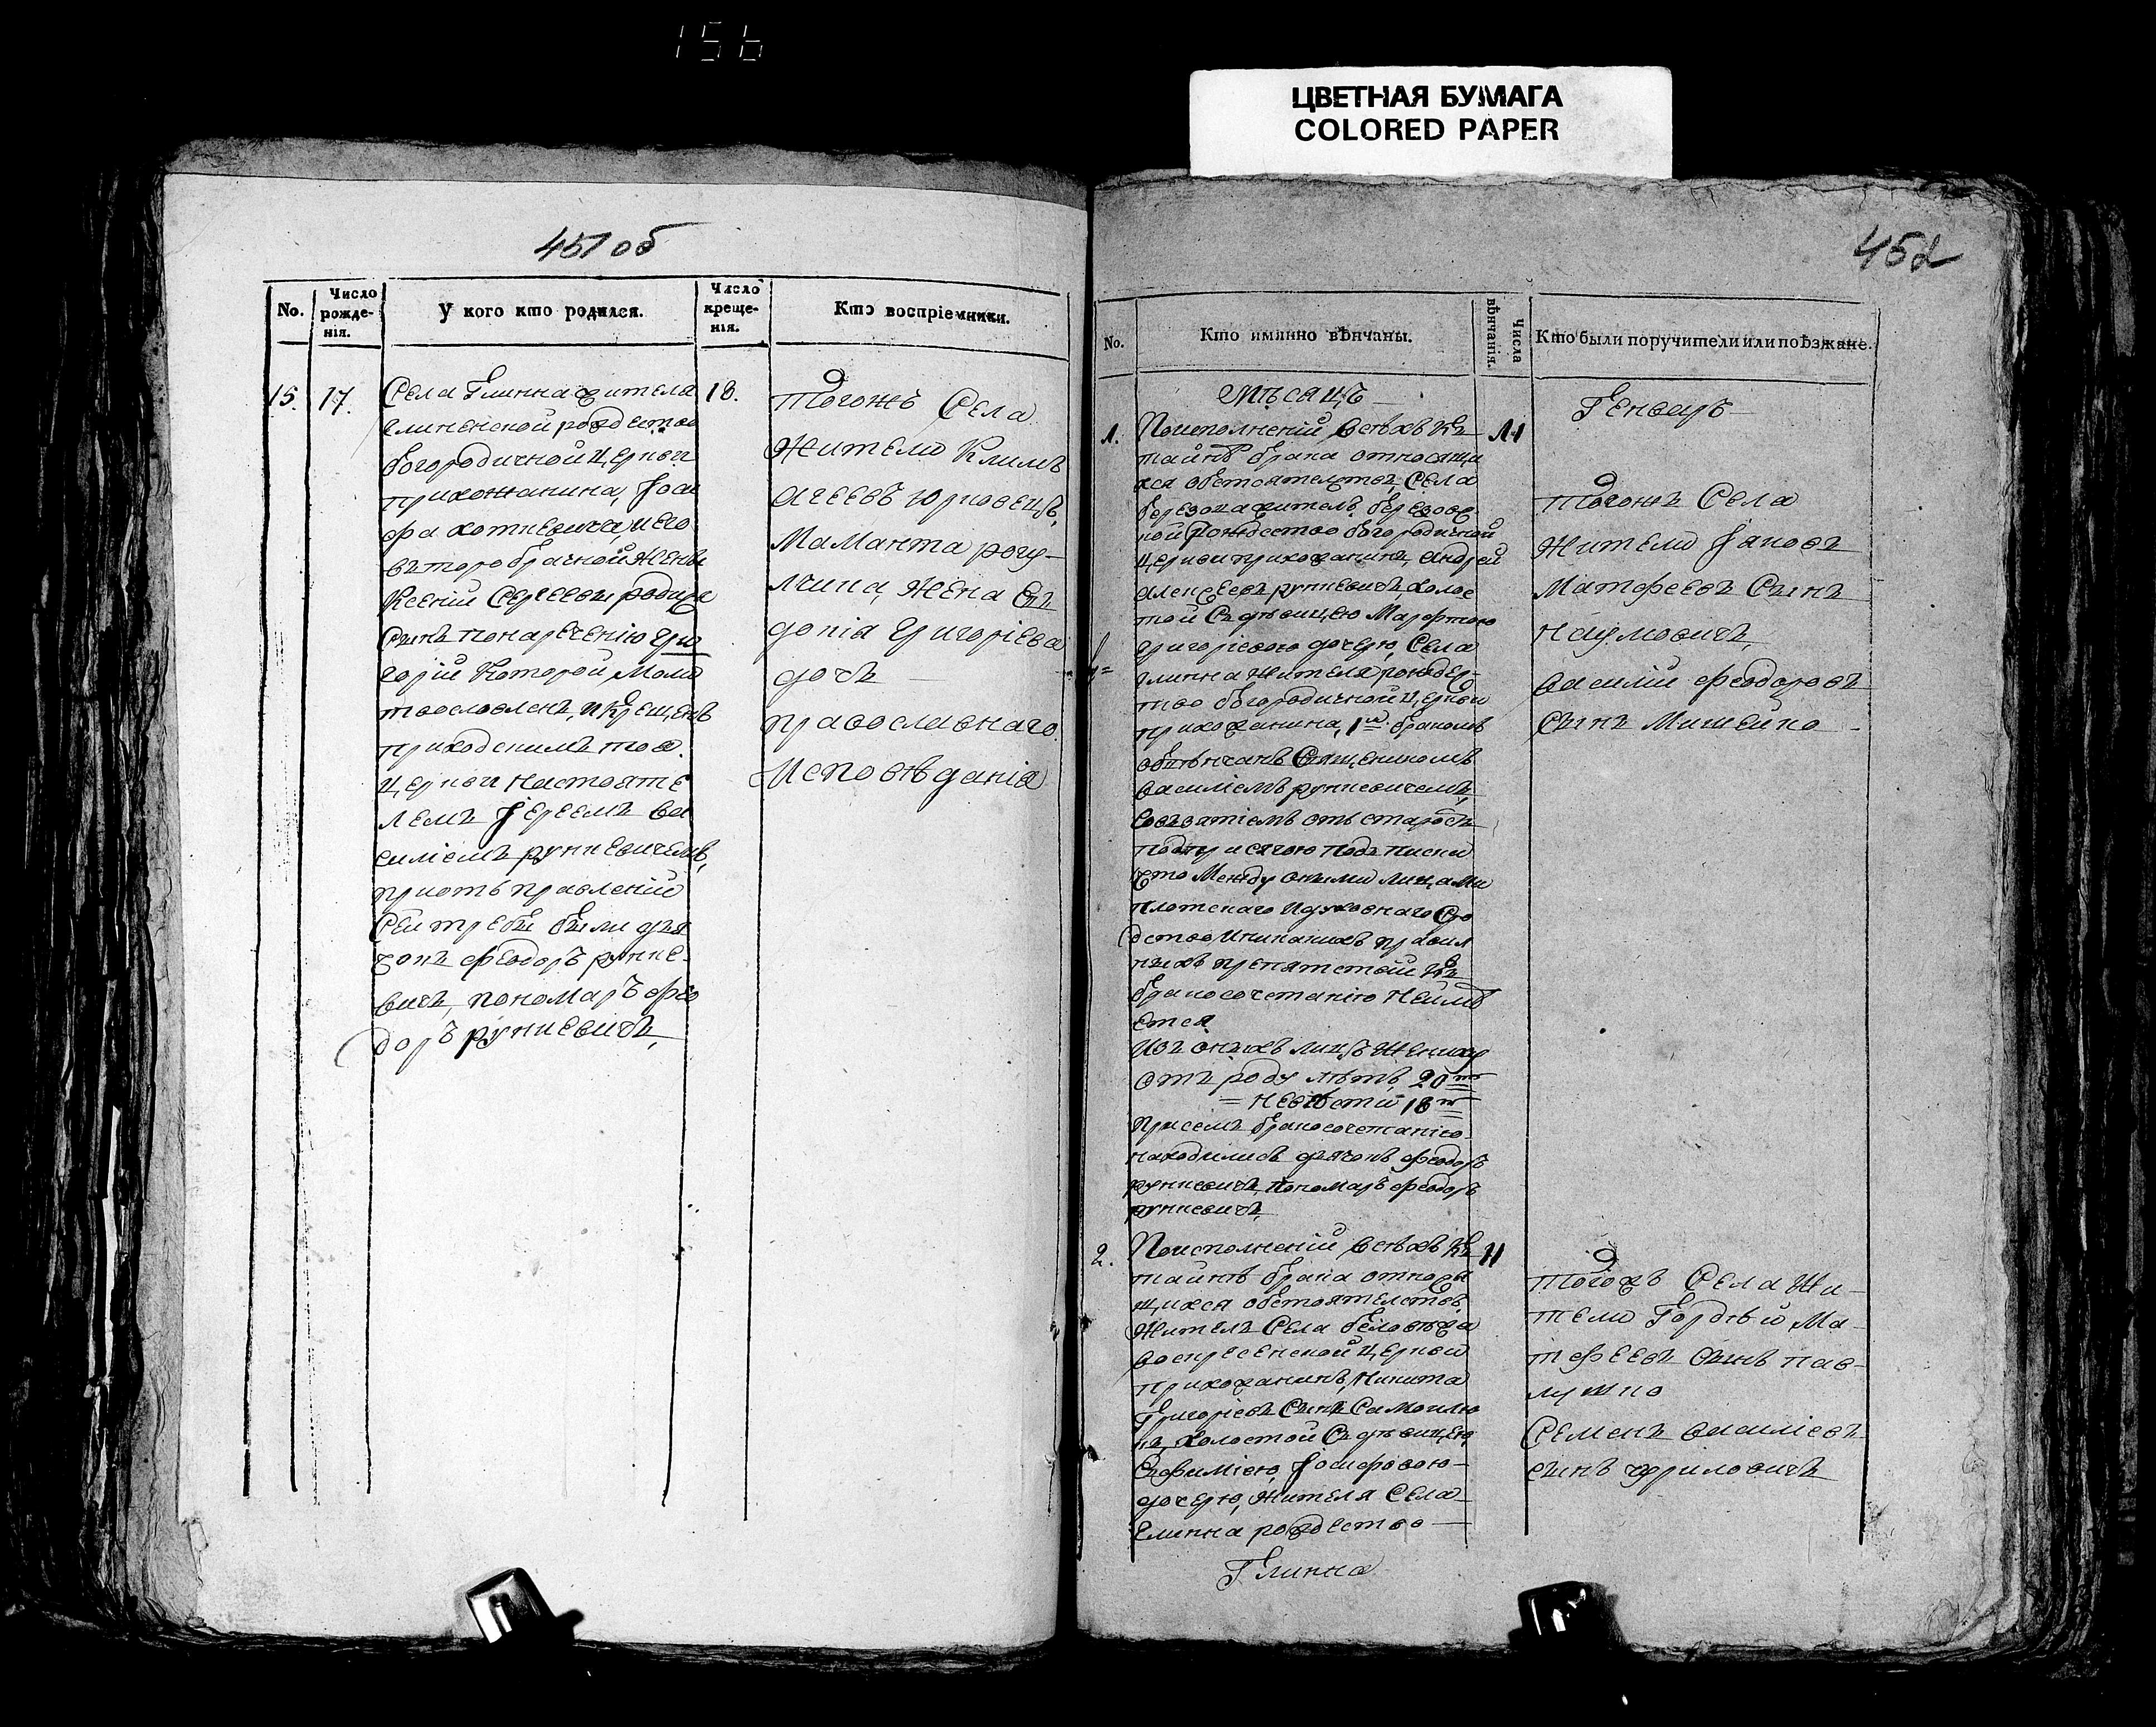 156
ЦВЕТНАЯ БУМАГА
COLORED PAPER
451 об
No.
Число рожде-нія.
У кого кто родился.
Число креще-нія.
Кто воспріемники.
15.
17.
Села Глинна жителя
глиненской рождество
богородичной церкви
прихожанина, Іоси
фа хотневича, и его
второбрачной жены
Ксеніи Сергеевы родился
Сынъ по наречению Гри
горій Которой, Моли
твословленъ, и Крещенъ
приходскимъ тоя
церкви настояте
лемъ Іереемъ Ва
силіемъ рункевичемъ,
при отправленіи
Сей требы были дья
чокъ феодоръ рунке-
вичъ, пономаръ фео
доръ рункевичъ,
18.
Тогожъ Села
Жители Климъ
агеевъ юрковецъ,
Маманта рогу-
лчина, Жена Ев
докія григоріева
дочь —
православнаго
Исповѣданія
452
No.
Кто имянно вѣнчаны.
Числа вѣнчанія.
Кто были поручители или поѣзжане.
Мѣсяцъ —
Генварь —
1.
По исполненіи всѣхъ къ
тайнѣ брака относящи
хся обстоятелствъ, Села
березока житель, березоц
кой Рождество богородичной
церкви прихожанинъ, андрей
алексеевъ рункевичъ, холос
той Съ дѣвицею Марфтою
григорівою дочерю, Села
глинна жителя рождес-
тво богородичной церкви
прихожанина, 1м бракомъ
обвѣнчанъ Священикомъ
василіемъ рункевичемъ,
Совзятіемъ отъ старость
подприсягою подписки
что Между оными лицами
плотскаго и духовнаго Сро
дства и никакихъ правил
ныхъ препятствій къ
бракосочетанію неимѣ
ется
Изъ оныхъ лицъ жениху
отъ роду лѣтъ, 20ть
= невѣсти 18ть
При семъ бракосочетанію
находились дьячокъ феодоръ
рункевичъ, пономаръ феодоръ
рункевичъ,
11
Тогожъ Села
Жители Іаковъ
Матфеевъ Сынъ
наумовичъ,
василій феодоровъ
сынъ Мишейко —
2.
По исполненіи всѣхъ къ
тайнѣ брака относя
щихся обстоятелствъ,
Житель Села бѣловѣжа
воскресенской церкви
прихожанинъ, Никита
Григоріевъ Сынъ Самоилю
къ, холостой Съ дѣвицею,
Евфиміею, Іосифовою —
дочерю, жителя Села
глинна рождество —
11
Тогожъ Села Жи-
тели Гордѣй Ма-
тфеевъ Сынъ пав-
лушко
Семенъ василіевъ
сынъ
Глинна